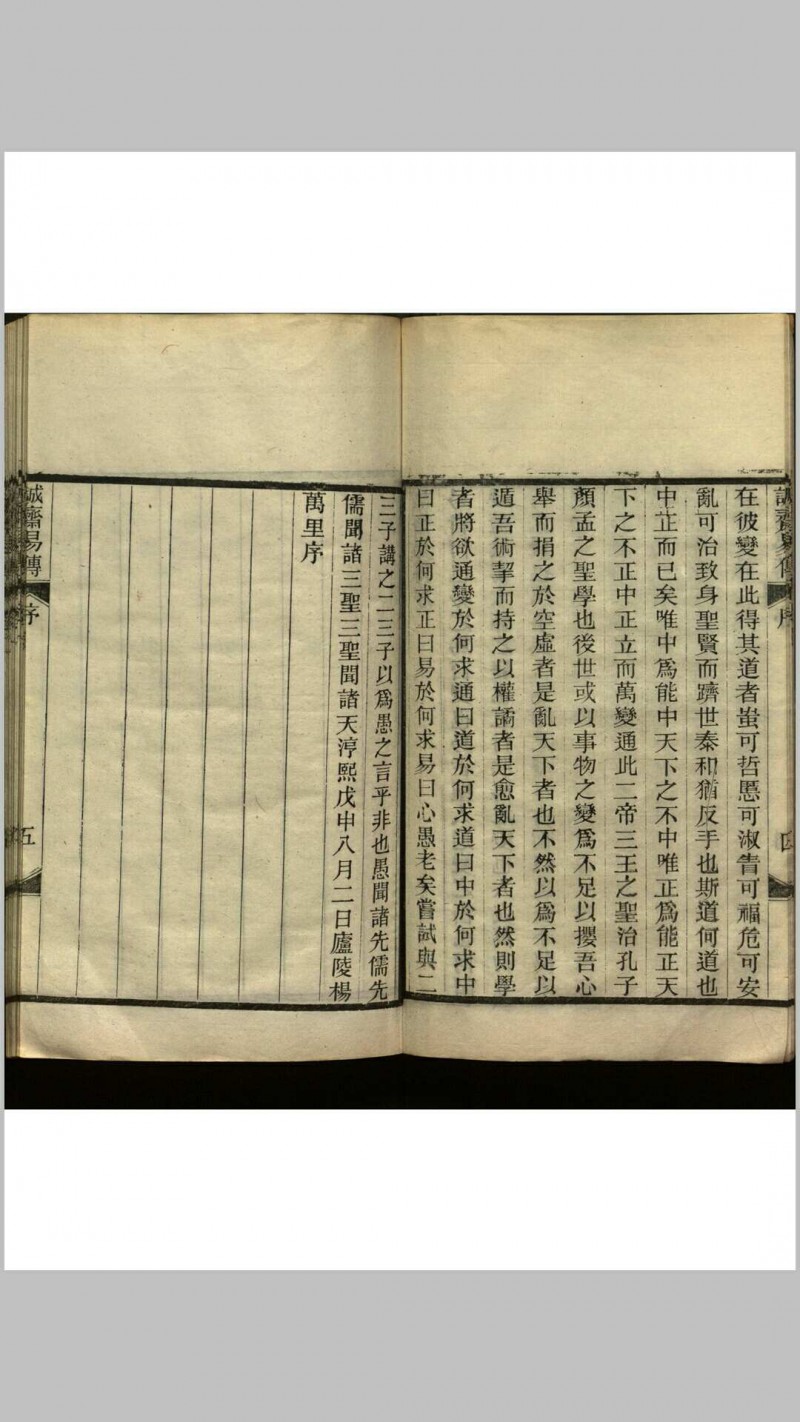 誠齋易傳
序
四
在彼變在此得其道者蚩可哲慝可淑眚可福危可安
亂可治致身聖賢而躋世泰和猶反手也斯道何道也
中正而已矣唯中爲能中天下之不中唯正爲能正天
下之不正中正立而萬變通此二帝三王之聖治孔子
顏孟之聖學也後世或以事物之變爲不足以攖吾心
舉而捐之於空虛者是亂天下者也不然以爲不足以
遁吾術挈而持之以權譎者是愈亂天下者也然則學
者將欲通變於何求通曰道於何求道曰中於何求中
曰正於何求正曰易於何求易曰心愚老矣嘗試與二
三子講之二三子以爲愚之言乎非也愚聞諸先儒先
儒聞諸三聖三聖聞諸天淳熙戊申八月二日廬陵楊
萬里序
誠齋易傳
序
五